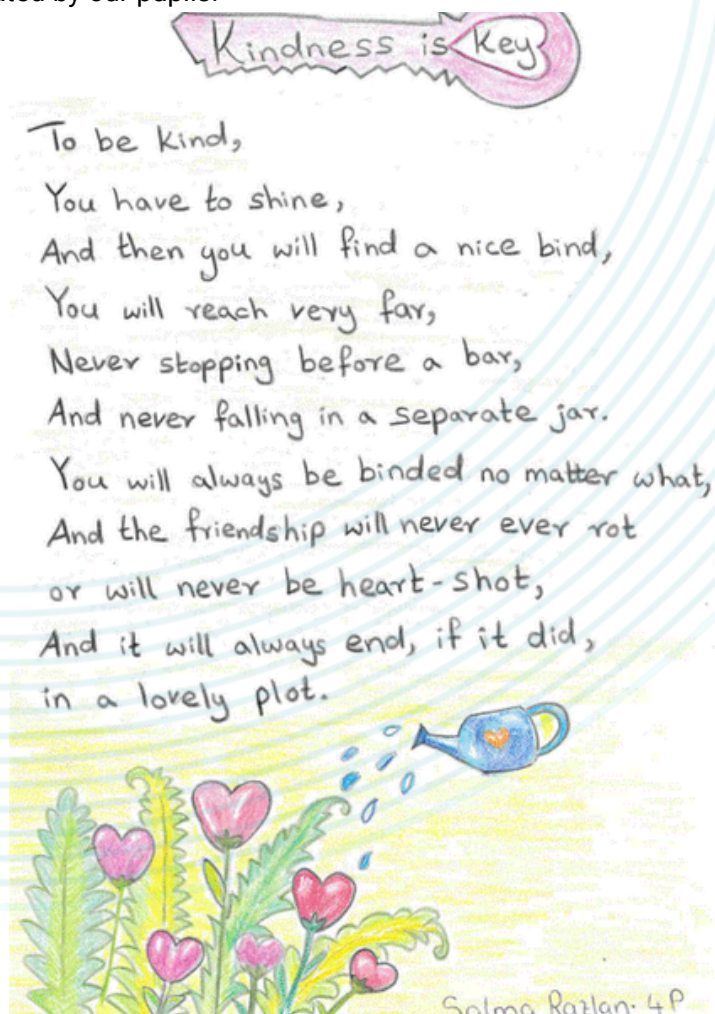 by our pupils.
Kindness is Key
To be kind,
You have to shine,
And then you will find a nice bind,
You will reach very far,
Never stopping before a bar,
And never falling in a separate jar.
You will always be binded no matter what,
And the friendship will never ever rot
or will never be heart-shot,
And it will always end, if it did,
in a lovely plot.
Salma Razlan. 4P